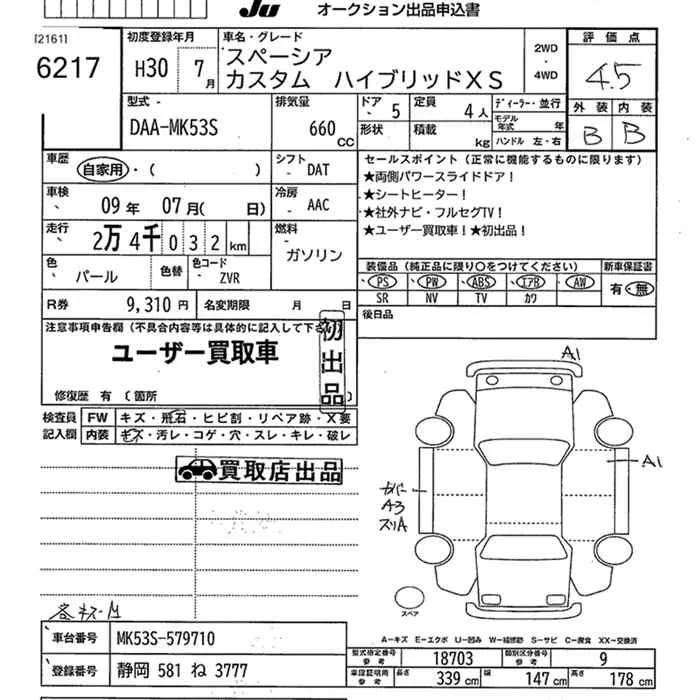 JU オークション出品申込書
[2161]
6217
初度登録年月
H30 7月
車名・グレード
スペーシア
カスタム ハイブリッドXS
2WD
・
4WD
評価点
4.5
型式
DAA-MK53S
排気量
660 CC
ドア 5
形状
定員 4人
積載 kg
ディーラー・並行
モデル年式 年
ハンドル 左・右
外装 内装
B B
車歴
自家用・( )
シフト
DAT
車検
09年 07月( 日)
冷房
AAC
走行
2万4千032km
燃料
ガソリン
色
パール
色替
色コード
ZVR
R券 9,310円
名変期限 月 日
セールスポイント(正常に機能するものに限ります)
★両側パワースライドドア!
★シートヒーター!
★社外ナビ・フルセグTV!
★ユーザー買取車!★初出品!
装備品(純正品に限り○をつけてください)
新車保証書
PS PW ABS エアB AW
SR NV TV カワ
有・無
後日品
注意事項申告欄(不具合内容等は具体的に記入して下さい)
ユーザー買取車
初出品
修復歴 有(箇所 )
検査員記入欄
FW キズ・飛石・ヒビ割・リペア跡・X要
内装 キズ・汚レ・コゲ・穴・スレ・キレ・破レ
買取店出品
A1
A1
カバー
A3
スリA
スペア
各キズA
A-キズ E-エクボ U-凹み W-補修跡 S-サビ C-腐食 XX-交換済
車台番号 MK53S-579710
登録番号 静岡 581 ね 3777
型式指定番号 参考 18703
類別区分番号 参考 9
車庫証明用 参考 長さ 339cm 幅 147cm 高さ 178cm